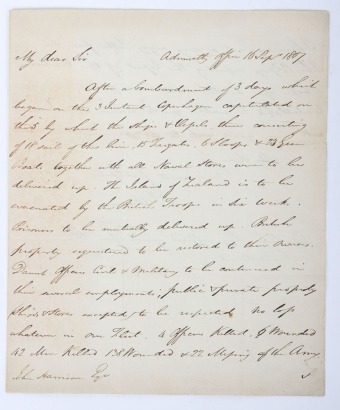 My dear Sir Admiralty Office 16 Sepr 1807
After a bombardment of 3 days which
began on the 3 Instant Copenhagen capitulated on
the 8 by which the Ships & Vessels there consisting
of 18 sail of the line, 15 Frigates, 6 Sloops & 25 Gun
Boats together with all Naval Stores were to be
delivered up. The Island of Zealand is to be
evacuated by the British Troops in six weeks.
Prisoners to be mutually delivered up. British
property sequestered to be restored to their owners.
Danish Officers Civil & Military to be continued in
their several employments, public & private property
Ships & Stores excepted, to be respected. no loss
whatever in our Fleet. 4 Officers Killed, 6 Wounded
42 Men Killed 138 Wounded & 22 Missing of the Army
John Harrison Esqr